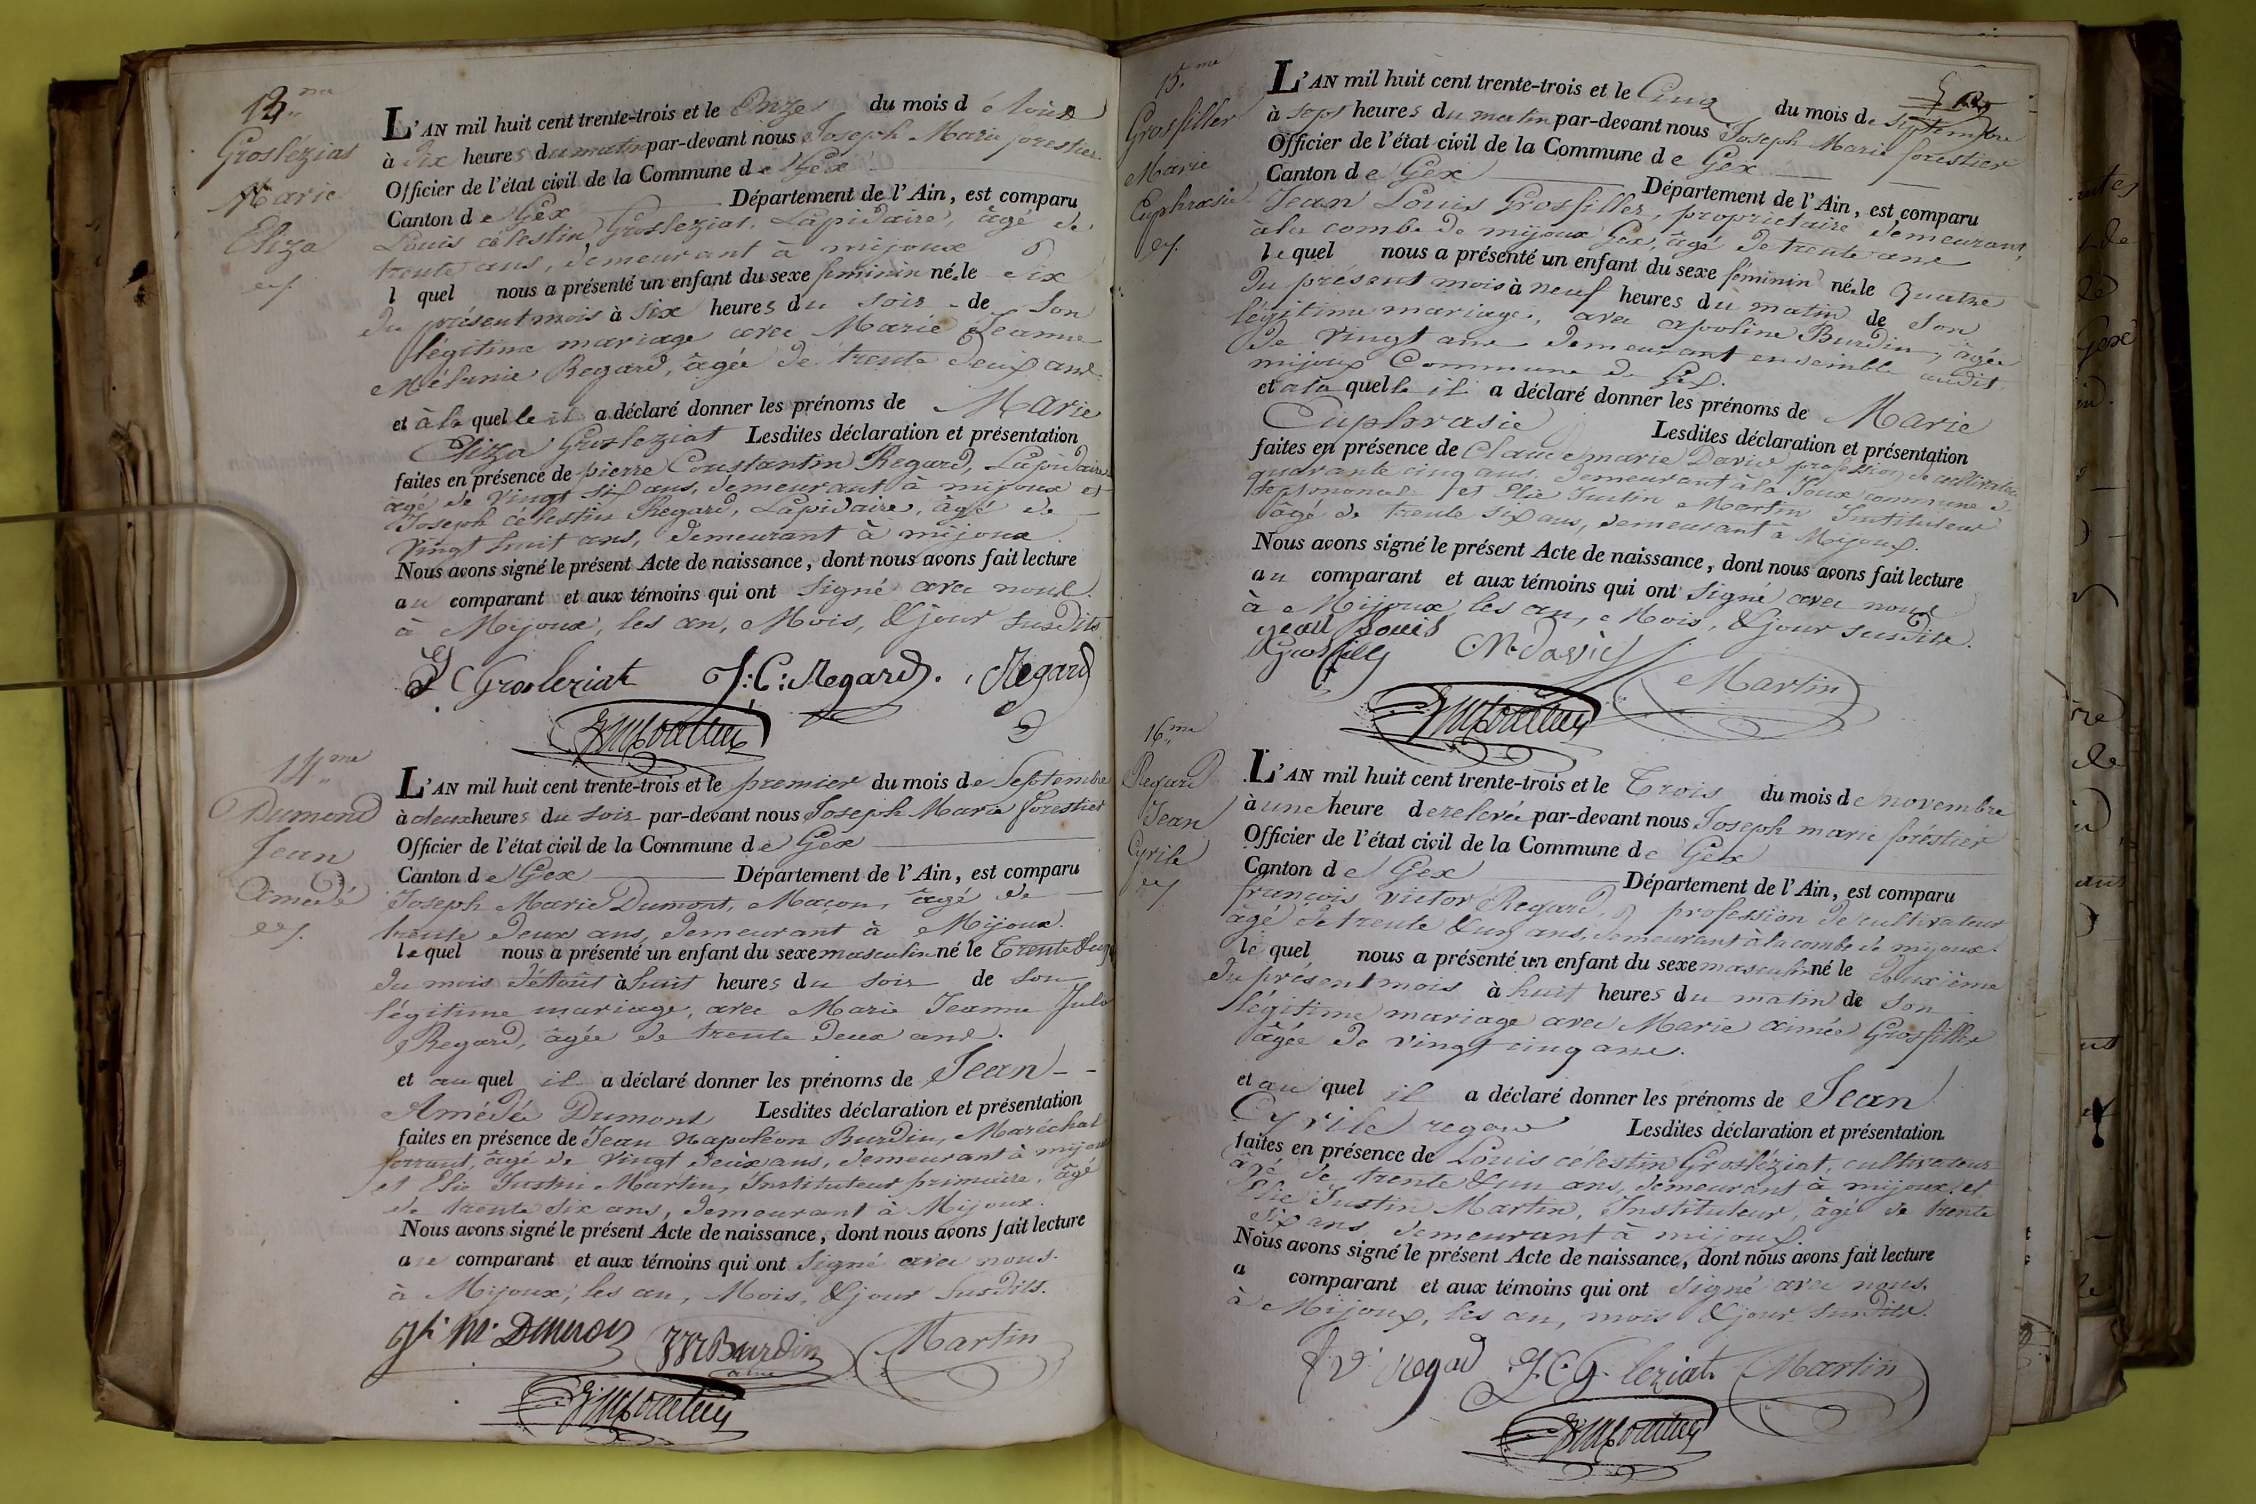 13.me
Grosléziat
Marie
Eliza
L'AN mil huit cent trente-trois et le Onze du mois d'
à dix heures du matin par-devant nous Joseph Marie forestier
Officier de l'état civil de la Commune de Gex
Canton de Gex Département de l'Ain, est comparu
Louis célestin Grosleziat, Lapidaire, âgé de
trente ans, demeurant à mijoux
l quel nous a présenté un enfant du sexe féminin né. le dix
du présent mois à six heures du soir de son
légitime mariage avec Marie Jeanne
Mélanie Regard, âgée de trente deux ans.
et à la quelle il a déclaré donner les prénoms de Marie
Eliza Grosleziat Lesdites déclaration et présentation
faites en présence de pierre Constantin Regard, Lapidaire
âgé de vingt six ans, demeurant à mijoux et
Joseph célestin Regard, Lapidaire, âgé de
vingt huit ans, demeurant à mijoux
Nous avons signé le présent Acte de naissance, dont nous avons fait lecture
au comparant et aux témoins qui ont signé avec nous.
à Mijoux, les an, Mois, & jour susdits
L C Grosleziat J: C: Regard. Regard
14.me
Dumond
Jean
Amédé
L'AN mil huit cent trente-trois et le premier du mois de Septembre
à deux heures du soir par-devant nous Joseph Marie forestier
Officier de l'état civil de la Commune de Gex
Canton de Gex Département de l'Ain, est comparu
Joseph Marie Dumont, Maçon, âgé de
trente deux ans, demeurant à Mijoux.
le quel nous a présenté un enfant du sexe masculin né le trente & un
du mois d'Août à huit heures du soir de son
légitime mariage, avec Marie Jeanne
Regard, âgée de trente deux ans.
et au quel il a déclaré donner les prénoms de Jean
Amédée Dumont Lesdites déclaration et présentation
faites en présence de Jean Napoléon Burdin, Maréchal
ferrant, âgé de vingt deux ans, demeurant à mijoux
et Elie Justin Martin, Instituteur primaire, âgé
de trente six ans, demeurant à Mijoux.
Nous avons signé le présent Acte de naissance, dont nous avons fait lecture
au comparant et aux témoins qui ont signé avec nous.
à Mijoux, les an, Mois, & jour susdits.
Burdin Martin
15.me
Grosfiller
Marie
Euphrasie
L'AN mil huit cent trente-trois et le Cinq du mois de septembre
à sept heures du matin par-devant nous Joseph Marie forestier
Officier de l'état civil de la Commune de Gex
Canton de Gex Département de l'Ain, est comparu
Jean Louis Grosfiller, propriétaire demeurant,
à la combe de mijoux Gex, âgé de trente ans
le quel nous a présenté un enfant du sexe féminin né. le quatre
du présent mois à neuf heures du matin de son
légitime mariage, avec apoline Burdin, âgée
de vingt ans demeurant ensemble audit
mijoux Commune de Gex.
et à la quelle il a déclaré donner les prénoms de Marie
Euphrasie Lesdites déclaration et présentation
faites en présence de Claude marie David profession de cultivateur
quarante cinq ans, demeurant à la Joux commune de
Septmoncel et Elie Justin Martin Instituteur
âgé de trente six ans, demeurant à Mijoux.
Nous avons signé le présent Acte de naissance, dont nous avons fait lecture
au comparant et aux témoins qui ont signé avec nous
à Mijoux, les an, Mois, & jour susdits.
jean Louis
Grosfiller David Martin
16.me
Regard
Jean
Cyrile
L'AN mil huit cent trente-trois et le Trois du mois de novembre
à une heure de relevée par-devant nous Joseph marie foréstier
Officier de l'état civil de la Commune de Gex
Canton de Gex Département de l'Ain, est comparu
françois victor Regard, profession de cultivateur
âgé de trente & un ans, demeurant à la combe de mijoux.
le quel nous a présenté un enfant du sexe masculin né le deuxième
du présent mois à huit heures du matin de son
légitime mariage avec Marie aimée Grosfiller
âgée de vingt cinq ans.
et au quel il a déclaré donner les prénoms de Jean
Cyrile regard Lesdites déclaration et présentation
faites en présence de Louis célestin Grosléziat, cultivateur
âgé de trente & un ans, demeurant à mijoux, et
Elie Justin Martin, Instituteur, âgé de trente
six ans demeurant à mijoux.
Nous avons signé le présent Acte de naissance, dont nous avons fait lecture
a comparant et aux témoins qui ont signé avec nous.
à Mijoux, les an, mois & jour susdits.
f v. regard L. C. G. leziat Martin